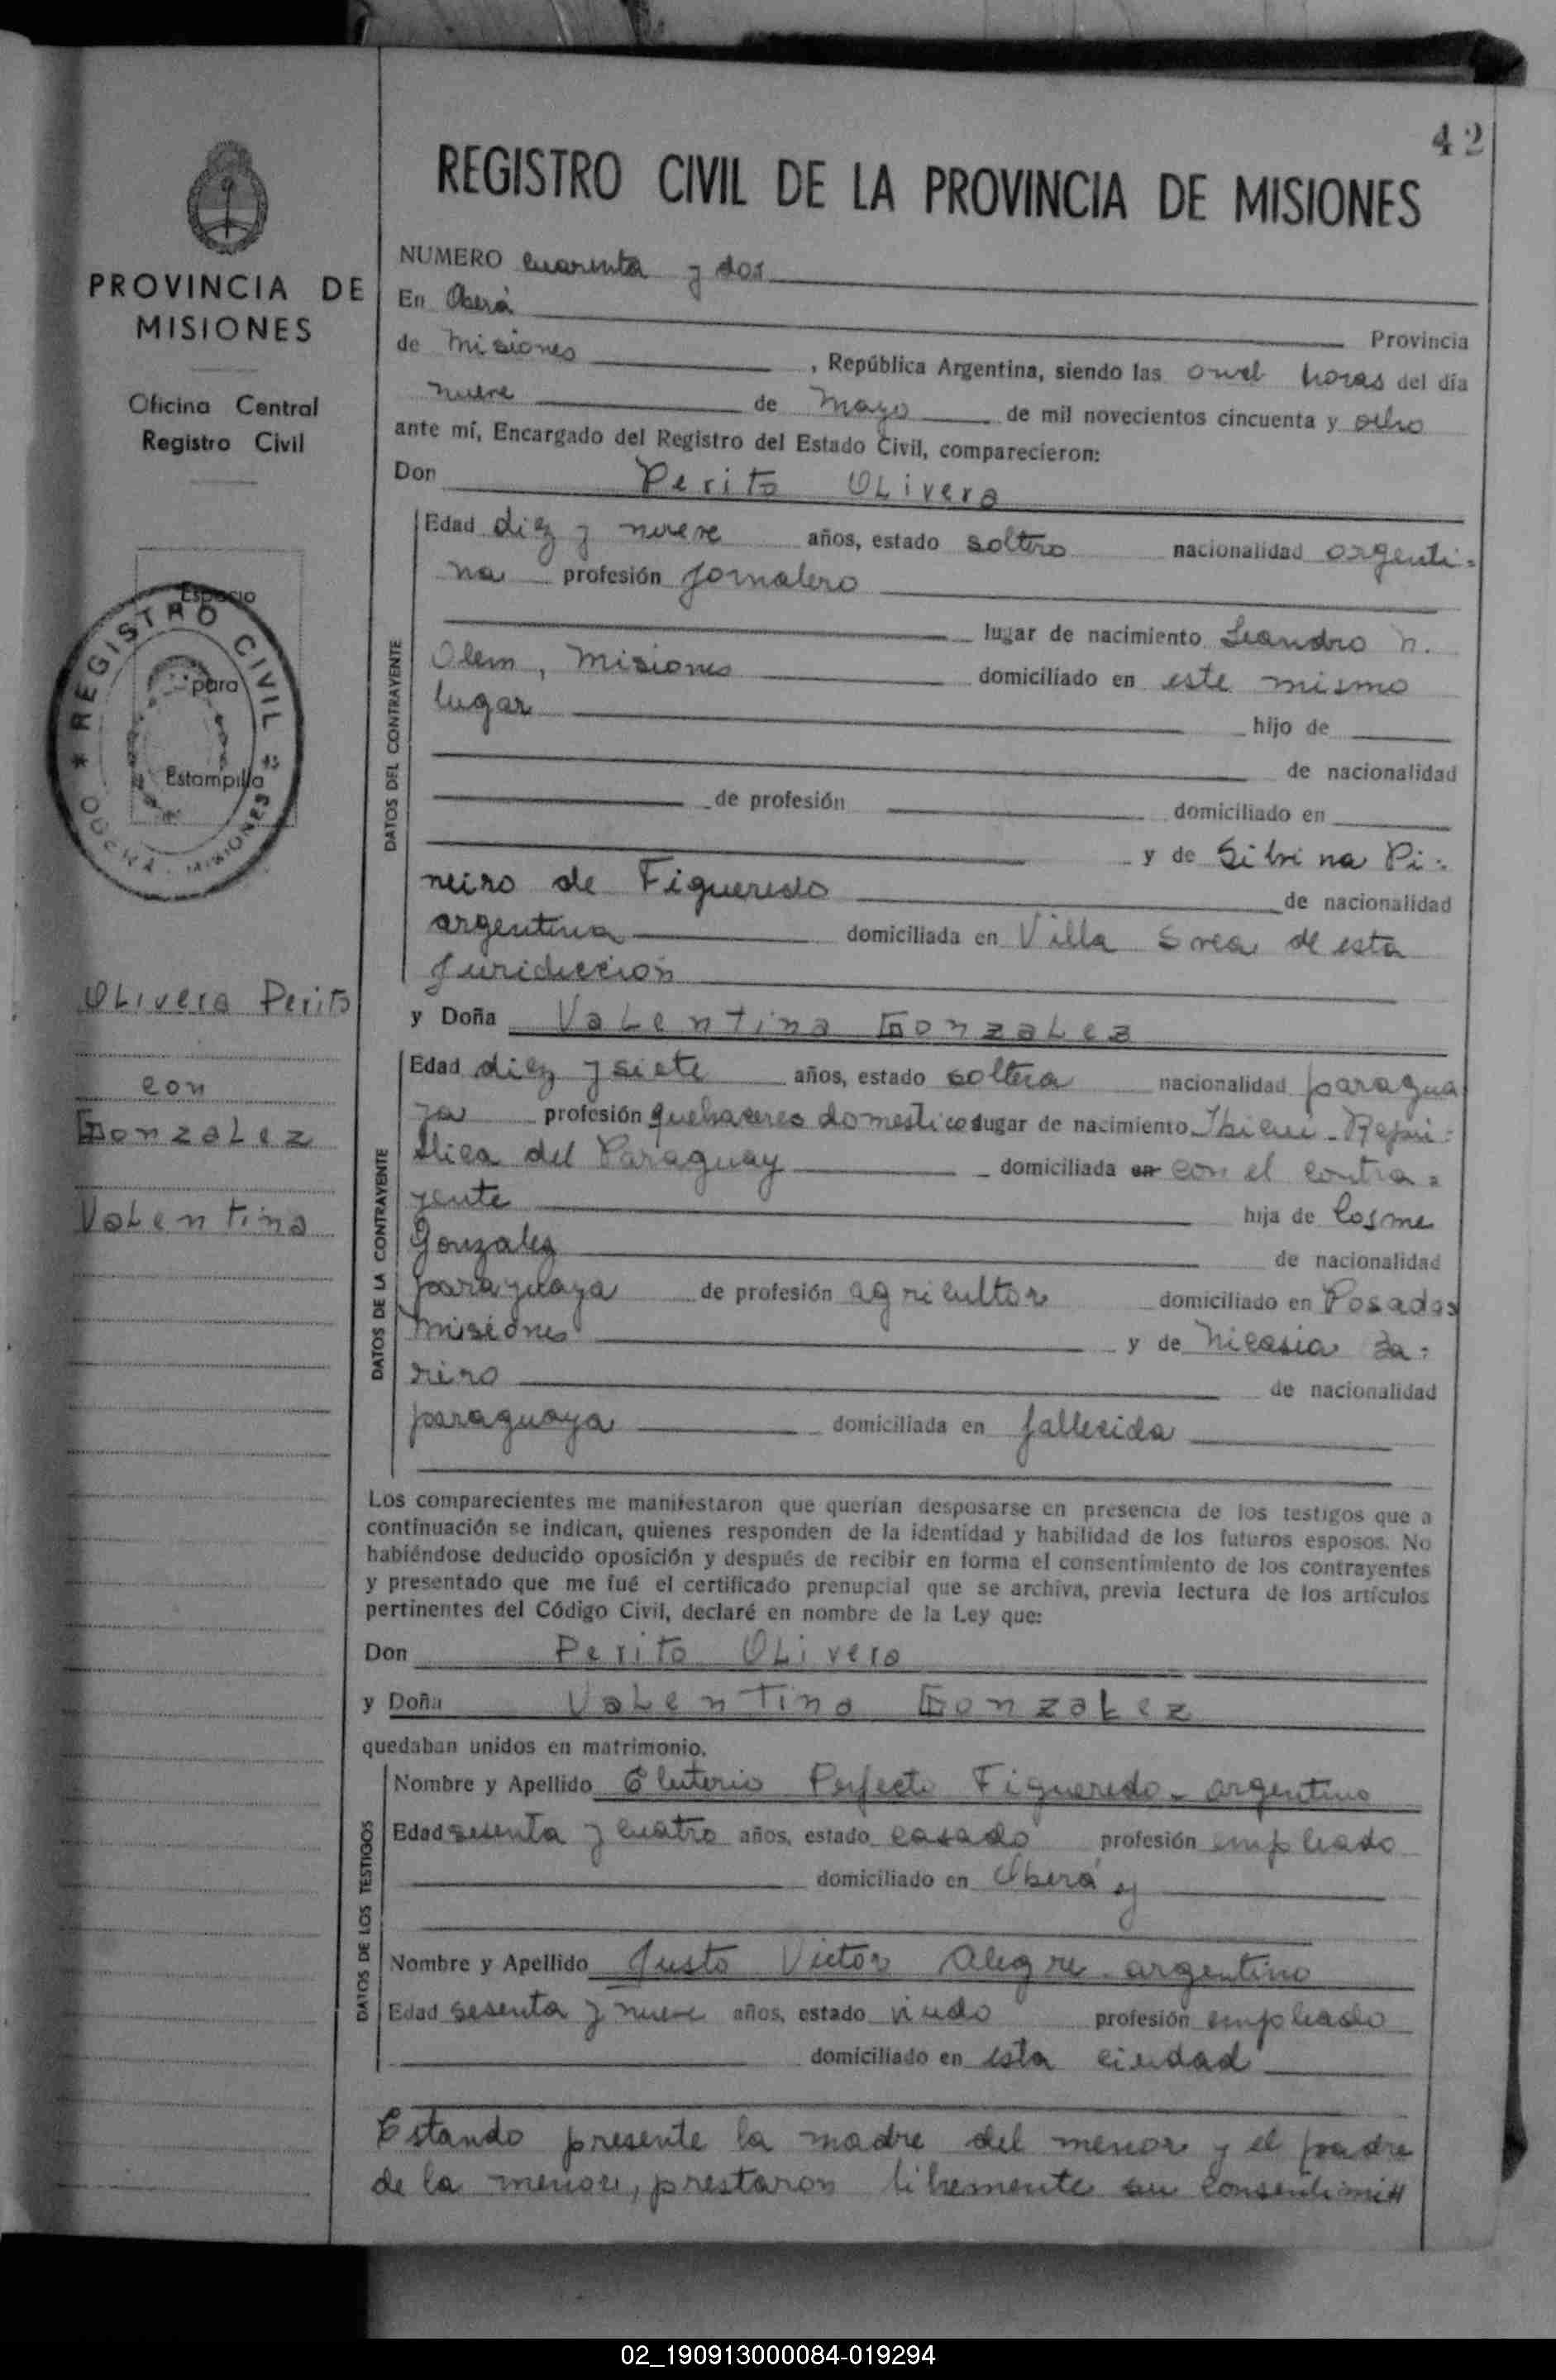 42
REGISTRO CIVIL DE LA PROVINCIA DE MISIONES
PROVINCIA DE
MISIONES
Oficina Central
Registro Civil
Espacio
para
Estampilla
* REGISTRO CIVIL *
MISIONES
Olivera Perito
con
Gonzalez
Valentina
NUMERO cuarenta y dos
En Oberá
Provincia
de Misiones , República Argentina, siendo las once horas del día
nueve de Mayo de mil novecientos cincuenta y ocho
ante mí, Encargado del Registro del Estado Civil, comparecieron:
Don Perito Olivera
DATOS DEL CONTRAYENTE
Edad diez y nueve años, estado soltero nacionalidad argenti-
na profesión Jornalero
lugar de nacimiento Leandro N.
Alem, Misiones domiciliado en este mismo
lugar hijo de
de nacionalidad
de profesión domiciliado en
y de Silvina Pi-
neiro de Figueredo de nacionalidad
argentina domiciliada en Villa Svea de esta
Juridiccion
y Doña Valentina Gonzalez
DATOS DE LA CONTRAYENTE
Edad diez y siete años, estado soltera nacionalidad paragua
ya profesión quehaceres domesticos lugar de nacimiento Repú-
blica del Paraguay domiciliada en con el contra-
yente hija de Cosme
Gonzalez de nacionalidad
paraguaya de profesión agricultor domiciliado en Posadas
Misiones y de Nicasia
de nacionalidad
paraguaya domiciliada en fallecida
Los comparecientes me manifestaron que querían desposarse en presencia de los testigos que a
continuación se indican, quienes responden de la identidad y habilidad de los futuros esposos. No
habiéndose deducido oposición y después de recibir en forma el consentimiento de los contrayentes
y presentado que me fué el certificado prenupcial que se archiva, previa lectura de los artículos
pertinentes del Código Civil, declaré en nombre de la Ley que:
Don Perito Olivera
y Doña Valentina Gonzalez
quedaban unidos en matrimonio.
DATOS DE LOS TESTIGOS
Nombre y Apellido Eluterio Perfecto Figueredo - argentino
Edad sesenta y cuatro años, estado casado profesión empleado
domiciliado en Oberá y
Nombre y Apellido Justo Victor Alegre argentino
Edad sesenta y nueve años, estado viudo profesión empleado
domiciliado en esta ciudad
Estando presente la madre del menor y el padre
de la menor, prestaron libremente su consentimi
02_190913000084-019294